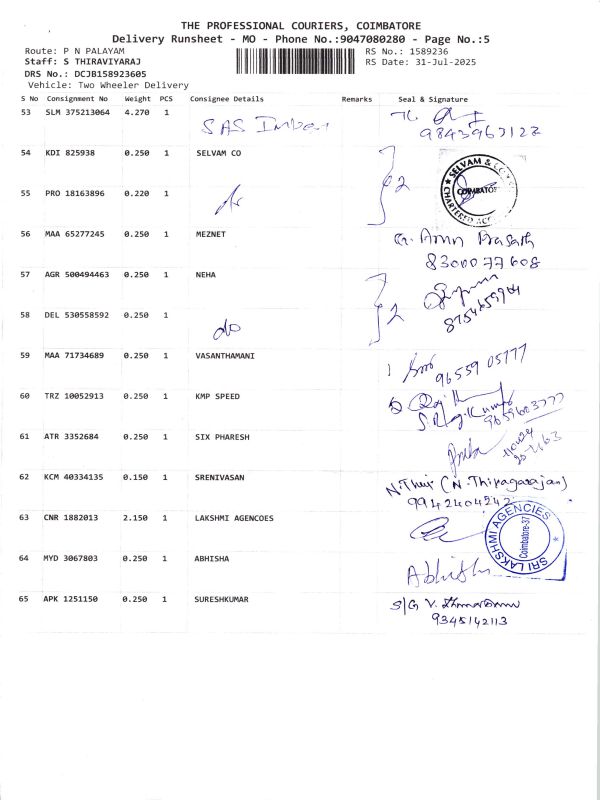 THE PROFESSIONAL COURIERS, COIMBATORE
Delivery Runsheet - MO - Phone No.:9047080280 - Page No.:5
Route: P N PALAYAM
RS No.: 1589236
Staff: S THIRAVIYARAJ
RS Date: 31-Jul-2025
DRS No.: DCJB158923605
Vehicle: Two Wheeler Delivery
S No Consignment No Weight PCS Consignee Details Remarks Seal & Signature
53 SLM 375213064 4.270 1 SAS
9843963122
54 KDI 825938 0.250 1 SELVAM CO } 2 SELVAM & CHARTERED
55 PRO 18163896 0.220 1 do
56 MAA 65277245 0.250 1 MEZNET G. Arun Prasath
8300077608
57 AGR 500494463 0.250 1 NEHA } 2
58 DEL 530558592 0.250 1 do
59 MAA 71734689 0.250 1 VASANTHAMANI 96559 05777
60 TRZ 10052913 0.250 1 KMP SPEED
9659603777
61 ATR 3352684 0.250 1 SIX PHARESH
62 KCM 40334135 0.150 1 SRENIVASAN (N. Thiyagarajan)
9942404242
63 CNR 1882013 2.150 1 LAKSHMI AGENCOES SRI LAKSHMI AGENCIES Coimbatore-37
64 MYD 3067803 0.250 1 ABHISHA
65 APK 1251150 0.250 1 SURESHKUMAR S/G V.
9345142113